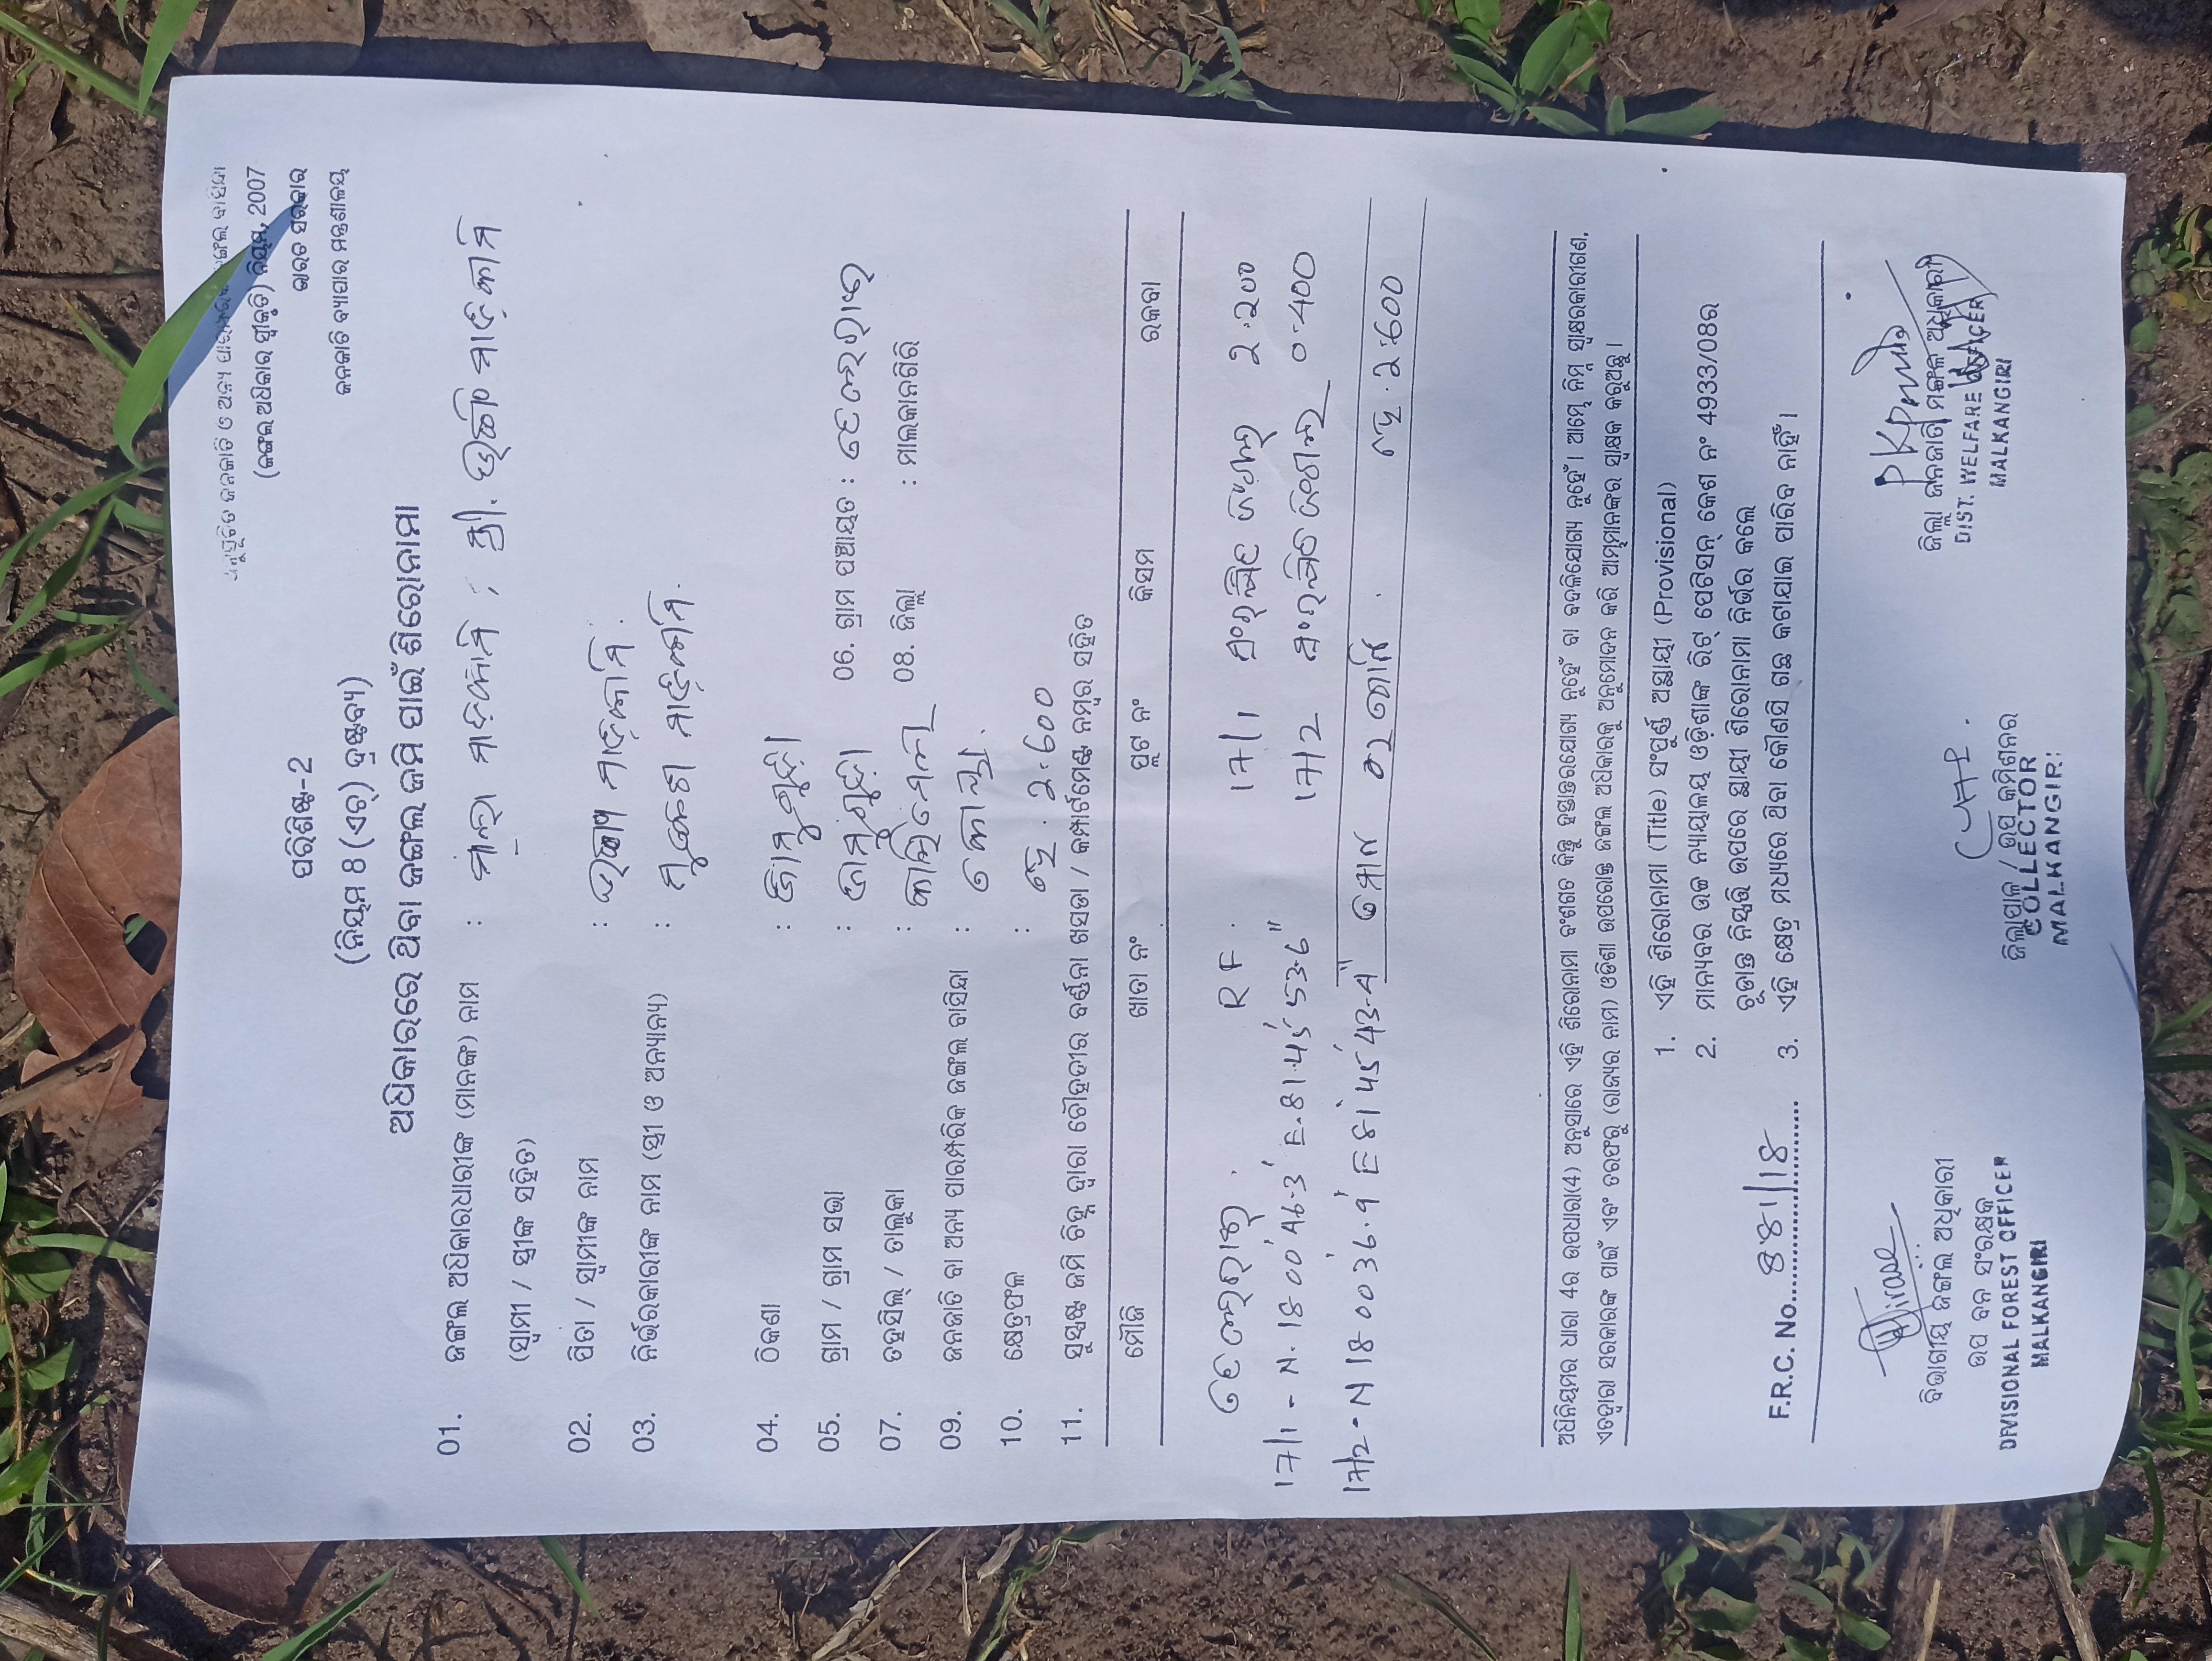 ଅନୁସୂଚିତ ଜନଜାତି ଓ ଅନ୍ୟ ପାରମ୍ପରିକ ଜଙ୍ଗଲ ବାସିନ୍ଦା
(ଜଙ୍ଗଲ ଅଧିକାର ସ୍ୱୀକୃତି) ନିୟମ, 2007
ଭାରତ ସରକାର
ଜନଜାତି ବ୍ୟାପାର ମନ୍ତ୍ରଣାଳୟ
ପରିଶିଷ୍ଟ-2
(ନିୟମ 8 (ଏଚ୍) ଦ୍ରଷ୍ଟବ୍ୟ)
ଅଧିକାରରେ ଥିବା ଜଙ୍ଗଲ ଜମି ପାଇଁ ଶିରୋନାମା
01. ଜଙ୍ଗଲ ଅଧିକାରଧାରୀଙ୍କ (ମାନଙ୍କ) ନାମ : ମାଡ଼କାମି ; ସ୍ତ୍ରୀ. ମାଡ଼କାମି
(ସ୍ୱାମୀ / ସ୍ତ୍ରୀଙ୍କ ସହିତ)
02. ପିତା / ସ୍ୱାମୀଙ୍କ ନାମ : ମାଡ଼କାମି.
03. ନିର୍ଭରକାରୀଙ୍କ ନାମ (ସ୍ତ୍ରୀ ଓ ଅନ୍ୟାନ୍ୟ) : ମୁକେଶ ମାଡ଼କାମି.
04. ଠିକଣା :
05. ଗ୍ରାମ / ଗ୍ରାମ ସଭା : 06. ଗ୍ରାମ ପଞ୍ଚାୟତ :
07. ତହସିଲ୍ / ତାଲୁକା : କାଲିମେଳା 08. ଜିଲ୍ଲା : ମାଲକାନଗିରି
09. ଜନଜାତି ବା ଅନ୍ୟ ପାରମ୍ପରିକ ଜଙ୍ଗଲ ବାସିନ୍ଦା : କୋୟା.
10. କ୍ଷେତ୍ରଫଳ : ହେ. 2.600
11. ସୁସ୍ପଷ୍ଟ ଜମି ଚିହ୍ନ ଦ୍ୱାରା ଚୌହଦୀର ବର୍ଣ୍ଣନା ଖସଡା / କମ୍ପାର୍ଟମେଣ୍ଟ ନମ୍ବର ସହିତ
ମୌଜି ଖାତା ନଂ ପ୍ଲଟ ନଂ କିସମ ରକବା
RF. 17/1 ଜଙ୍ଗଲ 2.200
17/1 - N. 18 00 46.3 E. 81.45 53.6" 17/2 0.400
17/2 - N 18 00 36.9 E 81 45 43.4" ମୋଟ 02 ହେ. 2.600
ଅଧିନିୟମର ଧାରା 4ର ଉପଧାରା(4) ଅନୁସାରେ ଏହି ଶିରୋନାମା ବଂଶଗତ କିନ୍ତୁ ହସ୍ତାନ୍ତରଯୋଗ୍ୟ ନୁହେଁ ବା ବଦଳିଯୋଗ୍ୟ ନୁହେଁ । ଆମ୍ଭେ ନିମ୍ନ ସ୍ୱାକ୍ଷରକାରୀଗଣ,
ଏତଦ୍ୱାରା ସରକାରଙ୍କ ପାଇଁ ଏବଂ ତରଫରୁ (ରାଜ୍ୟର ନାମ) ଓଡିଶା ଉପରୋକ୍ତ ଜଙ୍ଗଲ ଅଧିକାରକୁ ଅନୁମୋଦନ କରି ଆମ୍ଭମାନଙ୍କର ସ୍ୱାକ୍ଷର କରୁଅଛୁ ।
1. ଏହି ଶିରୋନାମା (Title) ସଂପୂର୍ଣ୍ଣ ଅସ୍ଥାୟୀ (Provisional)
2. ମାନ୍ୟବର ଉଚ୍ଚ ନ୍ୟାୟାଳୟ ଓଡ଼ିଶାଙ୍କ ରିଟ୍ ପେଟିସନ୍ କେଶ ନଂ 4933/08ର
ଚୂଡାନ୍ତ ନିଷ୍ପତ୍ତି ଉପରେ ସ୍ଥାୟୀ ଶିରୋନାମା ନିର୍ଭର କଲେ
F.R.C. No. 881/18 3. ଏହି କ୍ଷେତ୍ର ମଧ୍ୟରେ ଥିବା କୌଣସି ଗଛ କଟାଯାଇ ପାରିବ ନାହିଁ ।
ବିଭାଗୀୟ ଜଙ୍ଗଲ ଅଧିକାରୀ
ଉପ ବନ ସଂରକ୍ଷକ
DIVISIONAL FOREST OFFICER
MALKANGIRI
ଜିଲ୍ଲାପାଳ / ଉପ କମିଶନର
COLLECTOR
MALKANGIRI
ଜିଲ୍ଲା ଜନଜାତି ମଙ୍ଗଳ ଅଧିକାରୀ
DIST. WELFARE OFFICER
MALKANGIRI